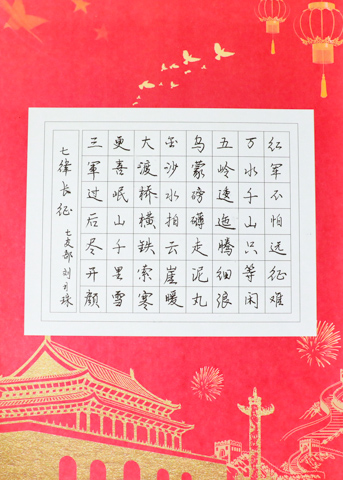 红军不怕远征难
万水千山只等闲
五岭逶迤腾细浪
乌蒙磅礴走泥丸
金沙水拍云崖暖
大渡桥横铁索寒
更喜岷山千里雪
三軍过后尽开颜
七律长征 七支部 刘